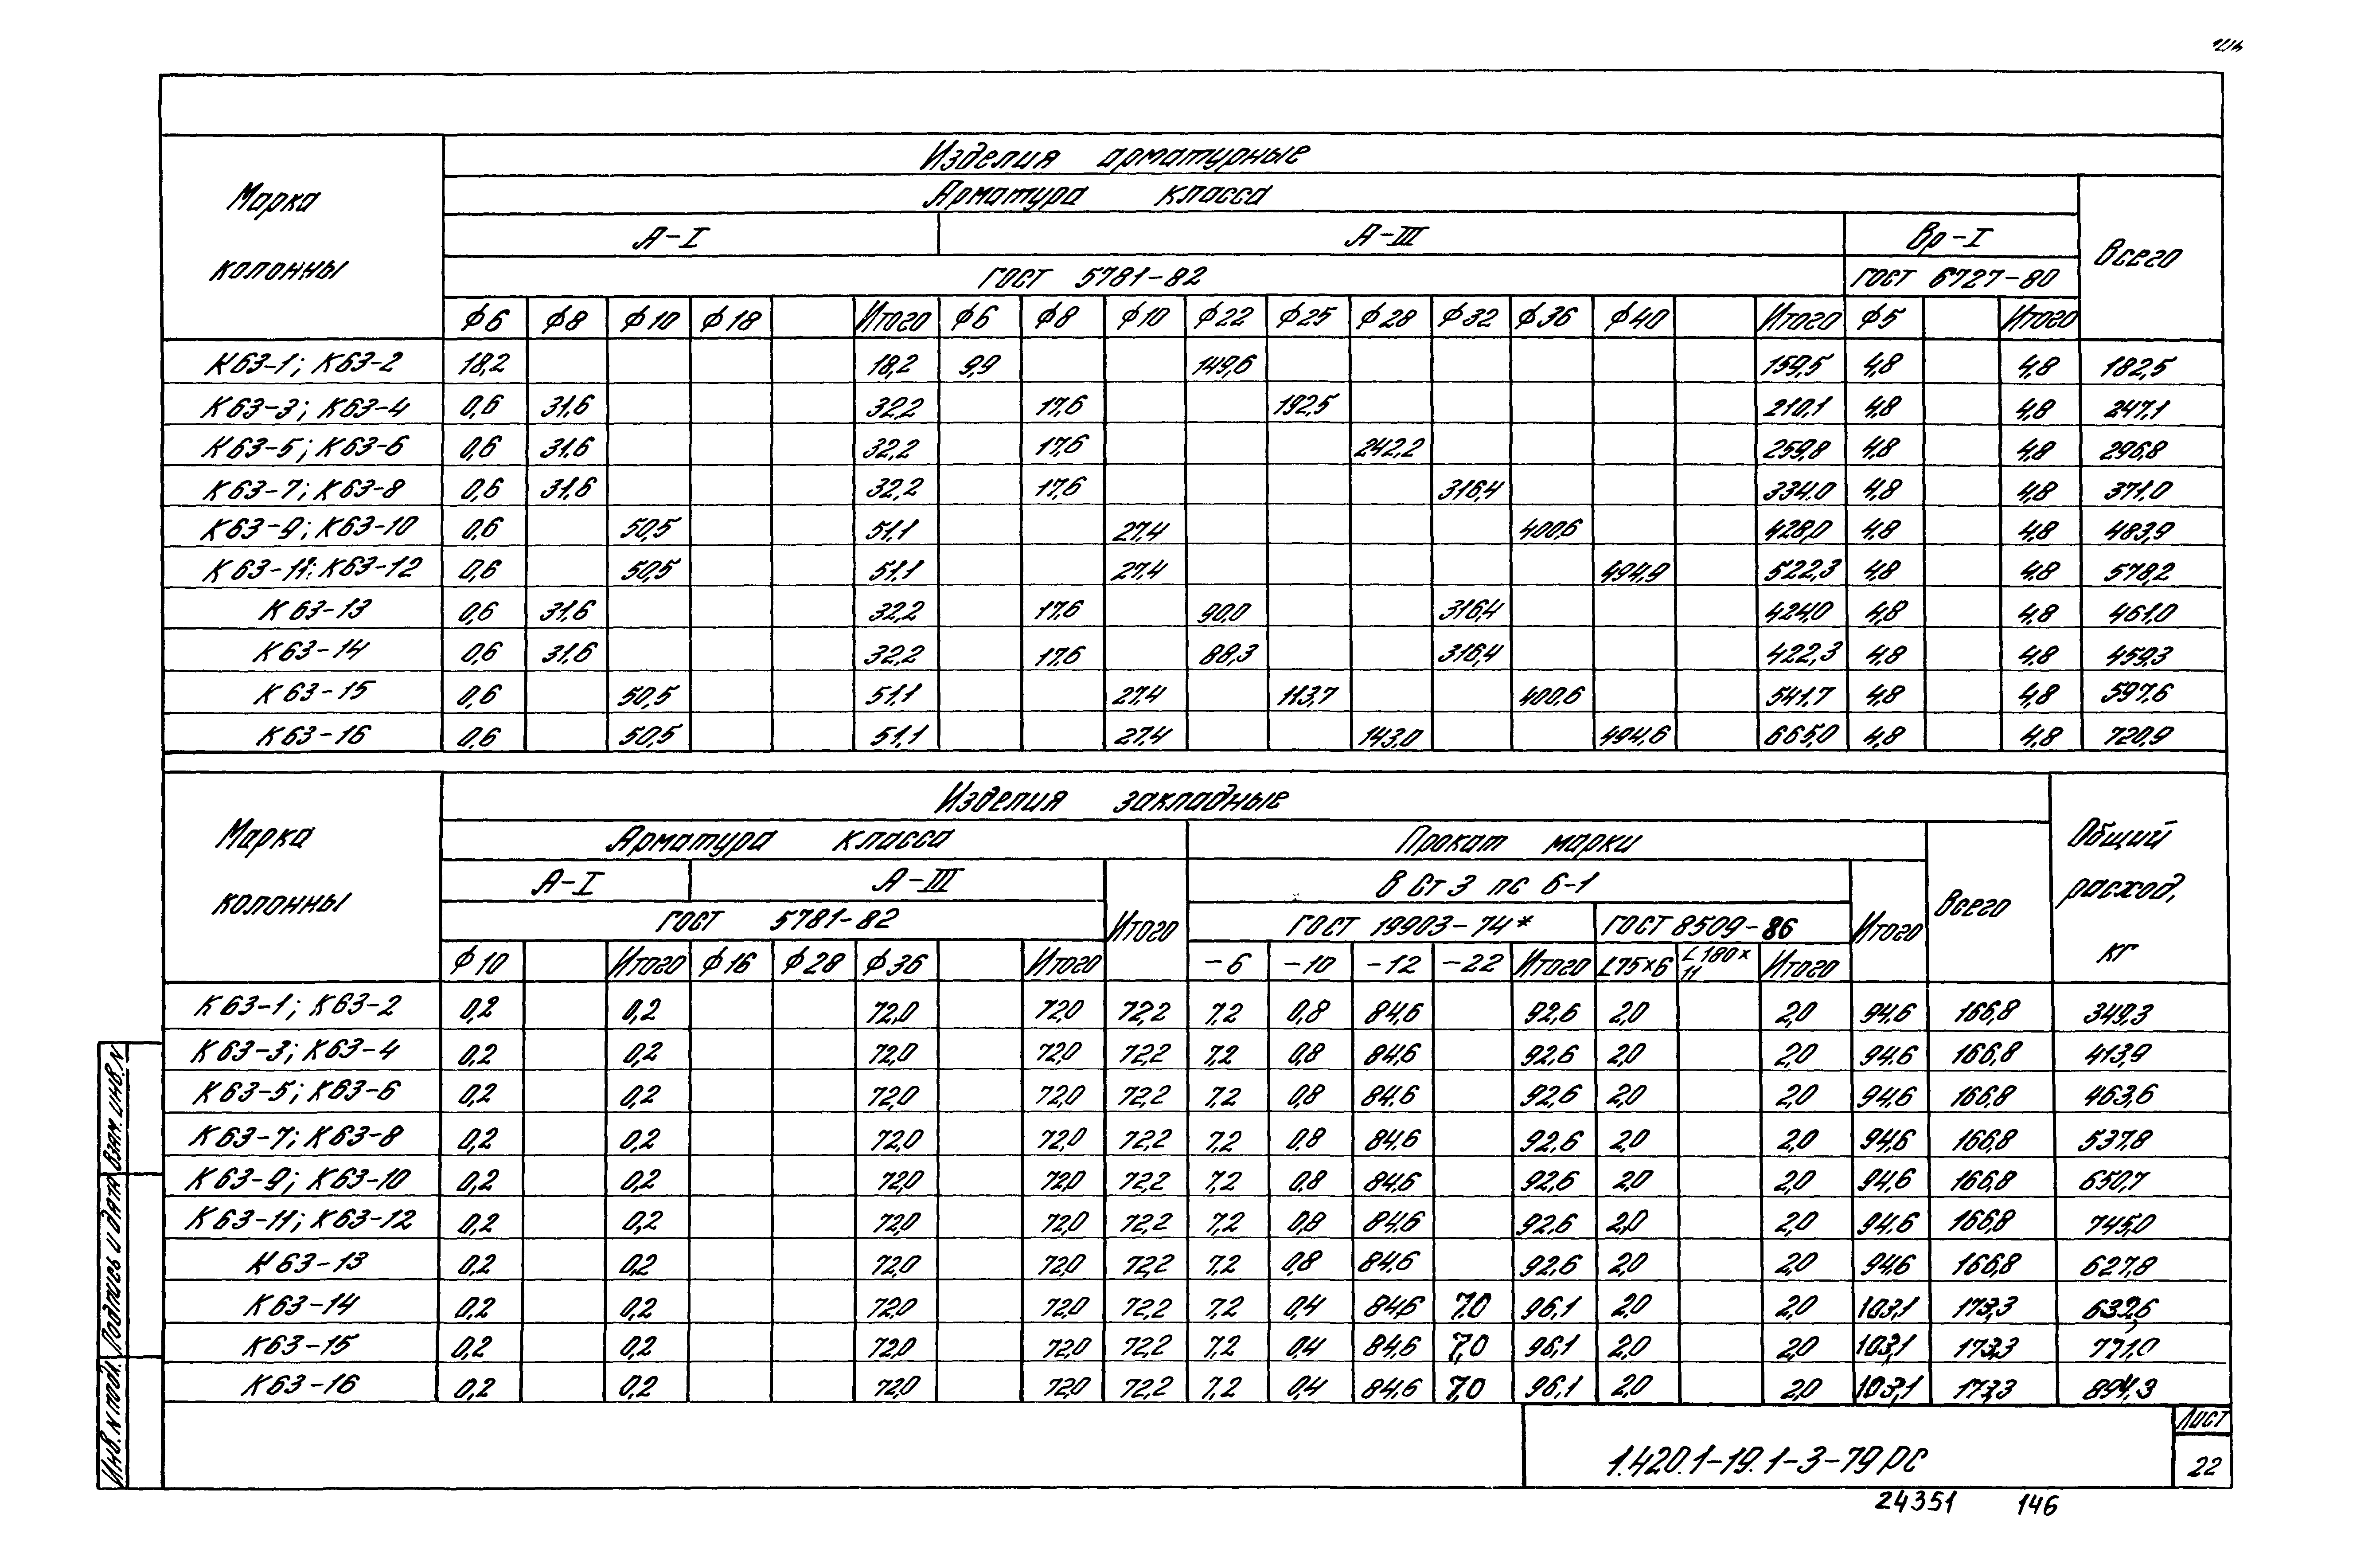 Изделия арматурные
Марка колонны
Арматура класса
Всего
А-I А-III Вр-I
ГОСТ 5781-82 ГОСТ 6727-80
ф6 ф8 ф10 ф18 Итого ф6 ф8 ф10 ф22 ф25 ф28 ф32 ф36 ф40 Итого ф5 Итого
К63-1; К63-2 18,2 18,2 9,9 149,6 159,5 4,8 4,8 182,5
К63-3; К63-4 0,6 31,6 32,2 17,6 192,5 210,1 4,8 4,8 247,1
К63-5; К63-6 0,6 31,6 32,2 17,6 242,2 259,8 4,8 4,8 296,8
К63-7; К63-8 0,6 31,6 32,2 17,6 316,4 334,0 4,8 4,8 371,0
К63-9; К63-10 0,6 50,5 51,1 27,4 400,6 428,0 4,8 4,8 483,9
К63-11; К63-12 0,6 50,5 51,1 27,4 494,9 522,3 4,8 4,8 578,2
К63-13 0,6 31,6 32,2 17,6 90,0 316,4 424,0 4,8 4,8 461,0
К63-14 0,6 31,6 32,2 17,6 88,3 316,4 422,3 4,8 4,8 459,3
К63-15 0,6 50,5 51,1 27,4 113,7 400,6 541,7 4,8 4,8 597,6
К63-16 0,6 50,5 51,1 27,4 143,0 494,6 665,0 4,8 4,8 720,9
Изделия закладные
Марка колонны
Арматура класса Прокат марки
Общий расход, кг
А-I А-III Итого В Ст 3 пс 6-1 Итого Всего
ГОСТ 5781-82 ГОСТ 19903-74* ГОСТ 8509-86
ф10 Итого ф16 ф28 ф36 Итого -6 -10 -12 -22 Итого L75×6 L180×11 Итого
К63-1; К63-2 0,2 0,2 72,0 72,0 72,2 7,2 0,8 84,6 92,6 2,0 2,0 94,6 166,8 349,3
К63-3; К63-4 0,2 0,2 72,0 72,0 72,2 7,2 0,8 84,6 92,6 2,0 2,0 94,6 166,8 413,9
К63-5; К63-6 0,2 0,2 72,0 72,0 72,2 7,2 0,8 84,6 92,6 2,0 2,0 94,6 166,8 463,6
К63-7; К63-8 0,2 0,2 72,0 72,0 72,2 7,2 0,8 84,6 92,6 2,0 2,0 94,6 166,8 537,8
К63-9; К63-10 0,2 0,2 72,0 72,0 72,2 7,2 0,8 84,6 92,6 2,0 2,0 94,6 166,8 650,7
К63-11; К63-12 0,2 0,2 72,0 72,0 72,2 7,2 0,8 84,6 92,6 2,0 2,0 94,6 166,8 745,0
К63-13 0,2 0,2 72,0 72,0 72,2 7,2 0,8 84,6 92,6 2,0 2,0 94,6 166,8 627,8
К63-14 0,2 0,2 72,0 72,0 72,2 7,2 0,4 84,6 7,0 96,1 2,0 2,0 103,1 173,3 632,6
К63-15 0,2 0,2 72,0 72,0 72,2 7,2 0,4 84,6 7,0 96,1 2,0 2,0 103,1 173,3 771,0
К63-16 0,2 0,2 72,0 72,0 72,2 7,2 0,4 84,6 7,0 96,1 2,0 2,0 103,1 173,3 894,3
Инв. N подл. Подпись и дата Взам. инв. N
1.420.1-19.1-3-79РС
Лист
22
24351 146